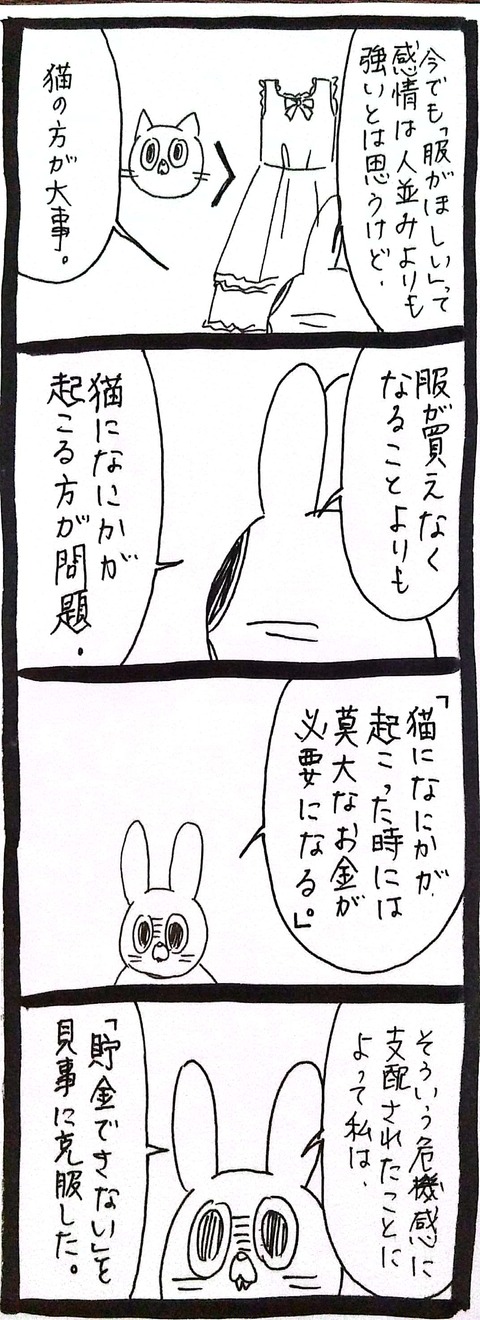 今でも「服がほしい」って
感情は人並みよりも
強いとは思うけど、
猫の方が大事。
服が買えなく
なることよりも
猫になにかが
起こる方が問題。
「猫になにかが
起こった時には
莫大なお金が
必要になる。」
そういう危機感に
支配されたことに
よって私は、
「貯金できない」を
見事に克服した。